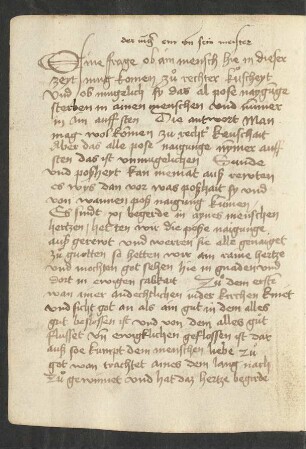 der iügͥ ein vn sein meister
Eine frage ob ain mensch hie in dieser
zeyt müg komen zů rechter kuscheyt
vnd ob mugelich sy das al pose naygüge
sterben in ainen menschen vnd nimmer
in am aufsten Die antwort Man
mag wol komen zu recht keuschait
Aber das alle pose naigunge nymer auf
sten das ist vnmugelichen Sunde
vnd posheyt kan niemat auß reyten
es wyß dan vor was poßhait sy vnd
von wannen poß naigung kumen
Es sindt begerde in aynes menschen
hertzen het ten wir die pose naigunge
auß gereüt vnd weren sie alle genaiget
zu guotten so hetten wir ain raine hertze
vnd mochten got sehen hie in gnaden vnd
dort in ewigem salikait Zu dem erste
wan ainer andechtlichen nider kirchen kniet
vnd sicht got an als ain gut in dem alles
gut beslossen ist vnd von dem alles gut
flusset vnd ewigklichen geflossen ist dar
auß so kumpt dem menschen liebe zu
got wan trachtet aines dem lang nach
zu gewinnet vnd hat daz hertze begerde